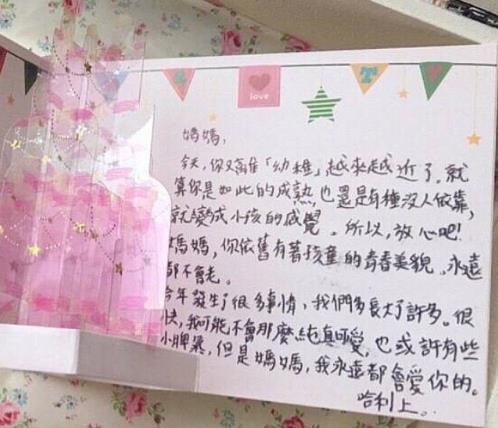 love
媽媽,
今天,你又離「幼稚」越來越近了。就
算你是如此的成熟也還是有種沒人依靠,
就變成小孩的感覺。所以,放心吧!
媽媽,你依舊有著孩童的青春美貌,永遠
都不會老。
今年發生了很多事情,我們都長大了許多。很
快,我可能不會那麼純真可愛,也或許有些
小脾氣,但是媽媽,我永遠都會愛你的。
哈利上。